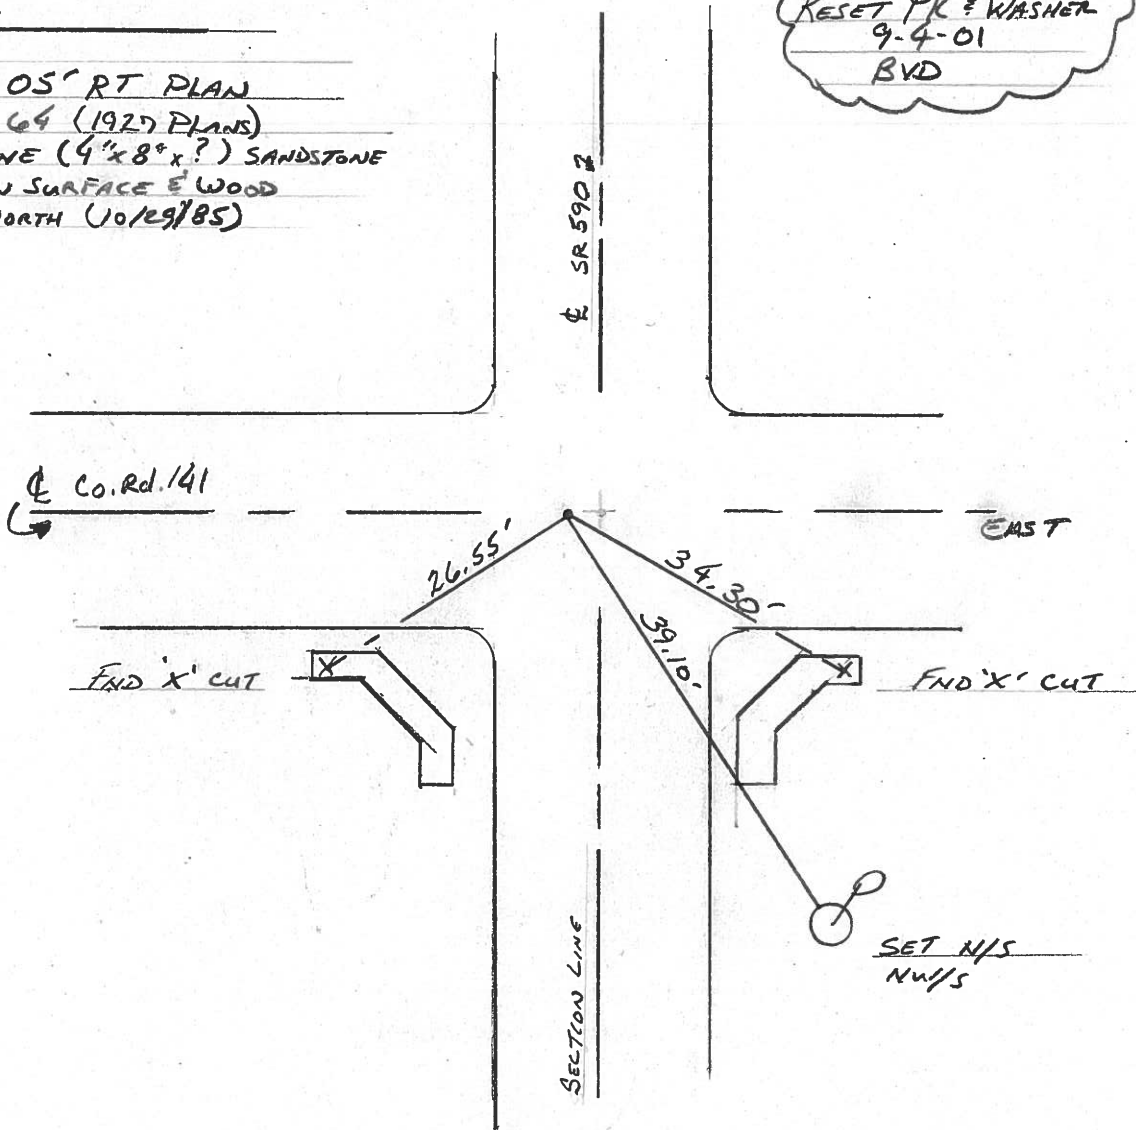 RESET PK & WASHER
9-4-01
BVD
05' RT PLAN
64 (1927 PLANS)
NE (4"x8"x?) SANDSTONE
N SURFACE & WOOD
NORTH (10/29/85)
℄ SR 590
℄ Co. Rd. 141
EAST
26.55'
34.30'
39.10'
FND 'X' CUT
X
X
FND 'X' CUT
SET N/S
SECTION LINE